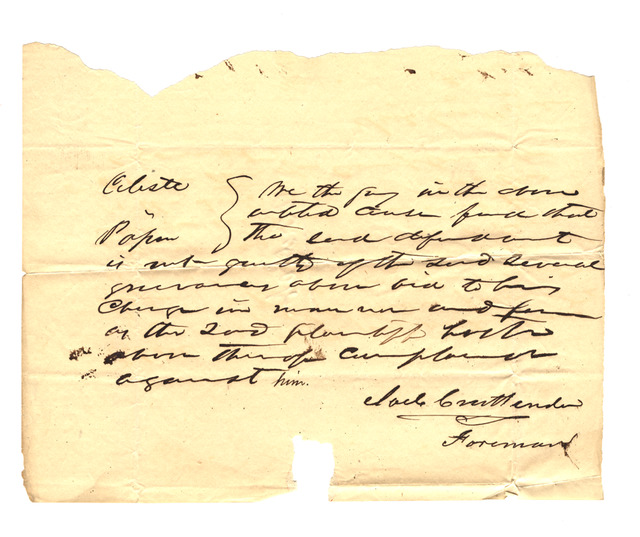 Celeste } We the jury in the above
" entitled cause find that
Papin } the said defendant
is not guilty of the said several
grievances above laid to his
charge in manner and form
as the said plaintiff hath
above thereof complained
against him.
Joel Cruttenden
Foreman